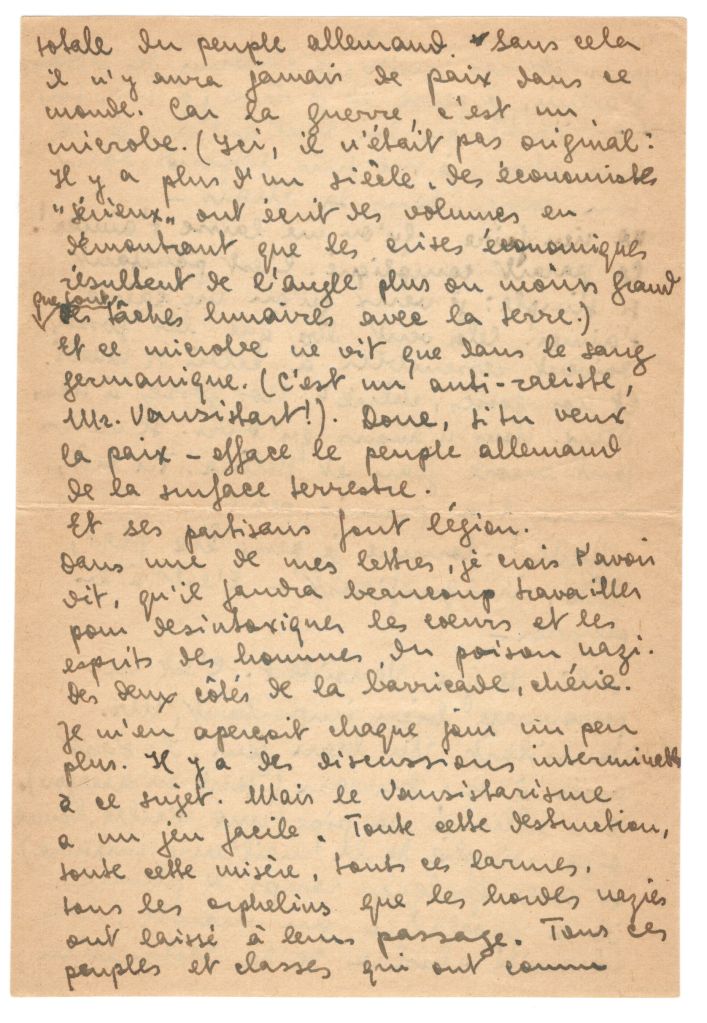 totale du peuple allemand. Sans cela
il n'y aura jamais de paix dans ce
monde. Car la guerre, c'est un
microbe. (Ici, il n'était pas original:
Il y a plus d'un siècle, des économistes
"sérieux" ont écrit des volumes en
démontrant que les crises économiques
résultent de l'angle plus ou moins grand
que font
les tâches lunaires avec la terre.)
Et ce microbe ne vit que dans le sang
germanique. (C'est un anti-raciste,
Mr. Vansistart!). Donc, si tu veux
la paix - efface le peuple allemand
de la surface terrestre.
Et ses partisans font légion.
Dans une de mes lettres, je crois t'avoir
dit, qu'il faudra beaucoup travailler
pour desintoxiquer les coeurs et les
esprits des hommes du poison nazi.
des deux côtés de la barricade, chérie.
Je m'en aperçoit chaque jour un peu
plus. Il y a des discussions interminables
à ce sujet. Mais le Vansistarisme
a un jeu facile. Toute cette destruction,
toute cette misère, touts ces larmes,
tous les orphelins que les hordes nazies
ont laissé à leurs passage. Tous ces
peuples et classes qui ont connu